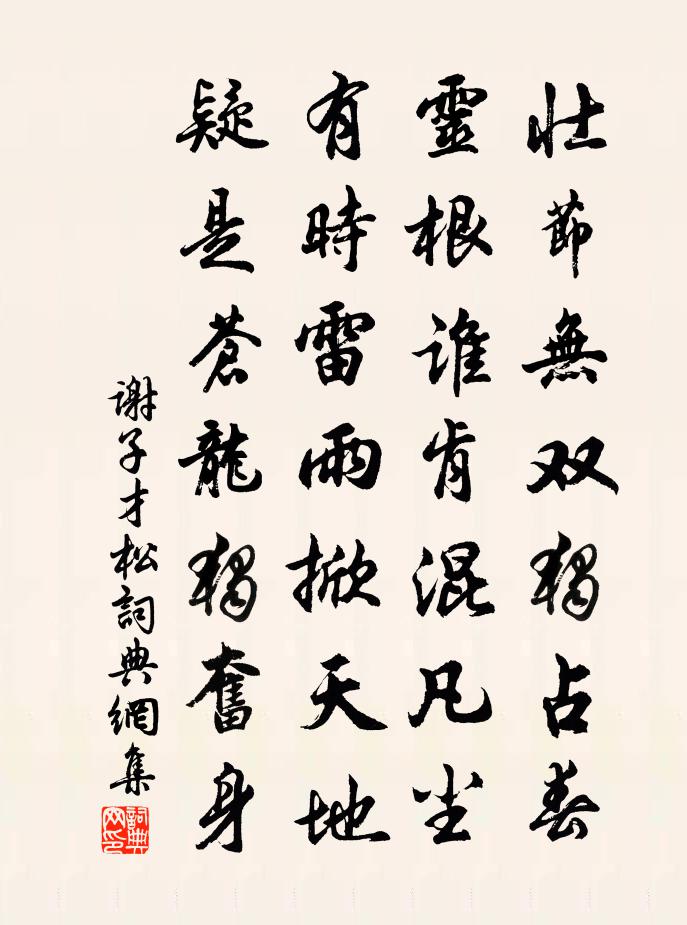 壯節無双獨占春
靈根谁肯混凡尘
有時雷雨掀天地
疑是蒼龍獨奮身
谢子才松詞典網集
詞典网印